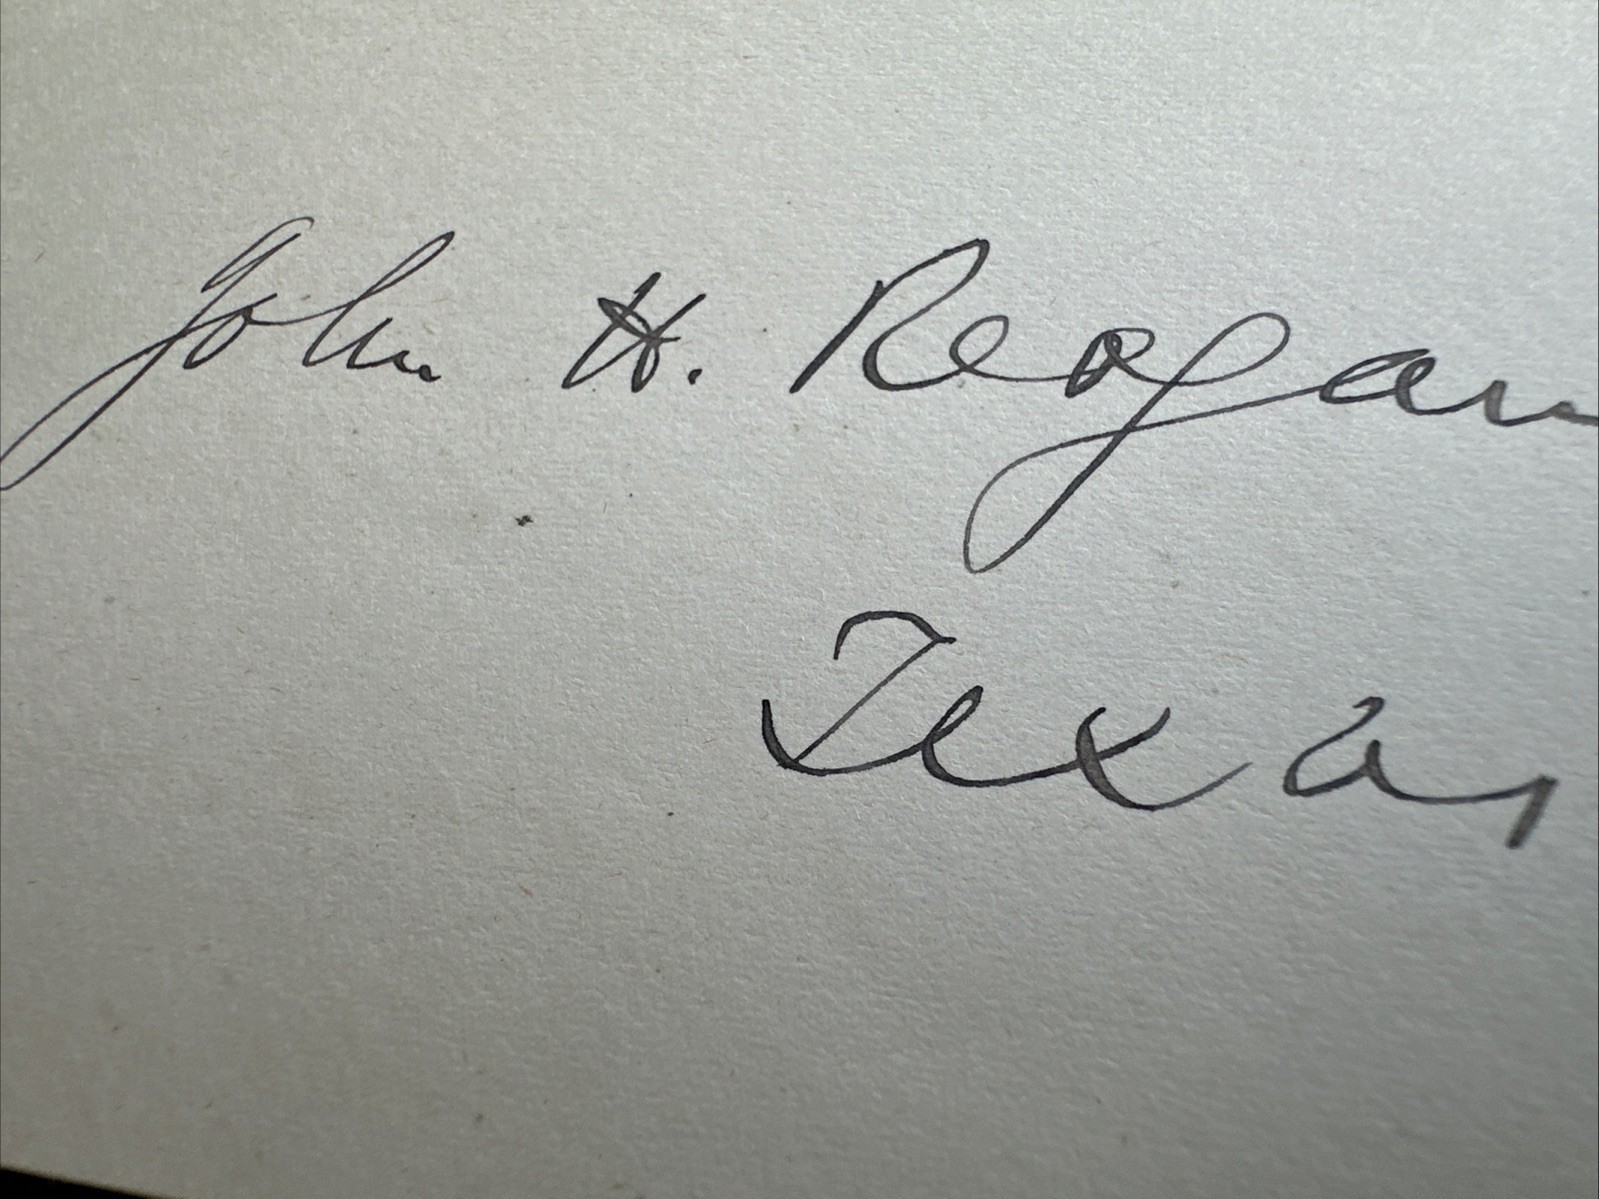 John H. Reagan
Texas